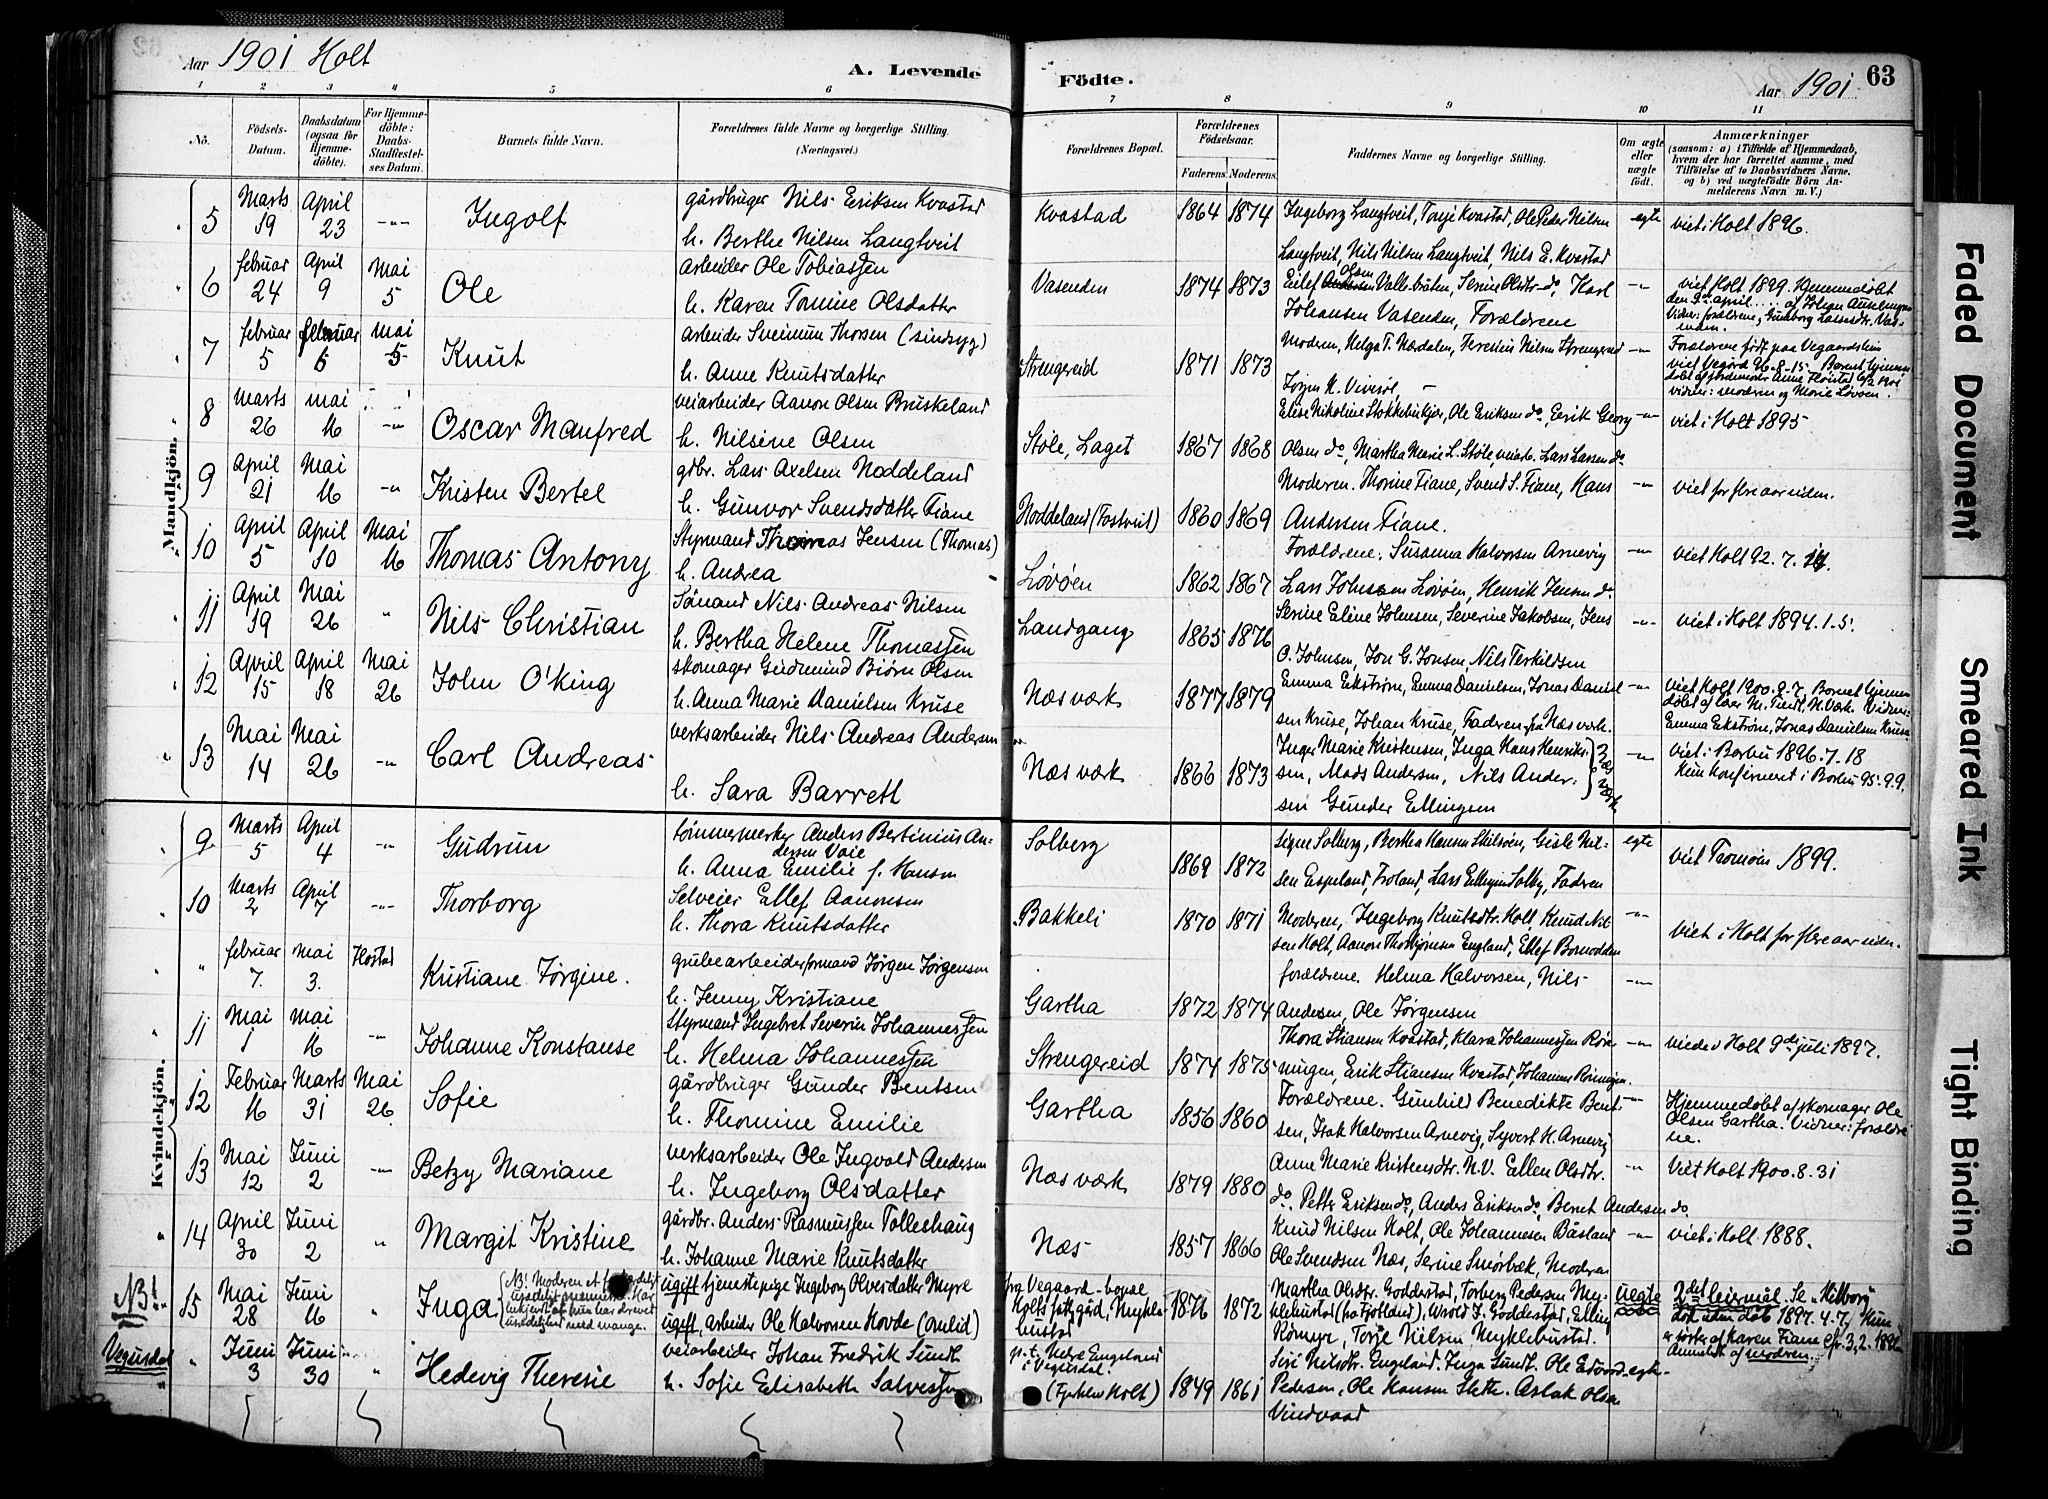 Aar 1901 Holt
A. Levende Födte.
Aar 1901
63
1 2 3 4 5 6 7 8 9 10 11
No.
Födsels-Datum.
Daabsdatum (ogsaa for Hjemme-döbte).
For Hjemme-döbte: Daabs-Stadfæstel-ses Datum.
Barnets fulde Navn.
Forældrenes fulde Navne og borgerlige Stilling. (Næringsvei.)
Forældrenes Bopæl.
Forældrenes Födselsaar.
Faderens. Moderens.
Faddernes Navne og borgerlige Stilling.
Om ægte eller uægte födt.
Anmærkninger
(saasom: a) i Tilfælde af Hjemmedaab, hvem der har forrettet samme, med Tilföielse af to Daabsvidners Navne. og b) ved uægtefödte Börn An-melderens Navn m. V.)
Mandkjön.
5 Marts 19 April 23 -"- Ingolf gårdbruger Nils Eriksen Kvastad
h. Berthe Nilsen Langtveit Kvastad 1864 1874 Ingeborg Langtveit, Tonje Kvastad, Ole Peder Nilsen
Langtveit, Nils Nilsen Langtveit, Nils E. Kvastad egte viet i Holt 1896.
6 februar 24 April 9 Mai 5 Ole arbeider Ole Tobiassen
h. Karen Tomine Olsdatter Vasenden 1874 1873 Eilef Olsen Vallebråten, Serine Olsdtr do, Karl
Johansen Vasenden, Forældrene -"- viet Holt 1899. Hjemmedöbt
den 9de april af Johan
Vidner: forældrene, Gunborg Lassesdtr. Vas-
enden.
7 februar 5 februar 6 mai 5 Knut arbeider Sveinum Thorsen (sindsyg)
h. Anne Knutsdatter Strengereid 1871 1873 Modern, Helga T. Nærdalen, Teresius Nilsen Strengereid
Jörgen N. Viversöl, -"- Forældrene födt paa Vegaardshein
viet Vegård 96-8-15. Barnet hjemme-
döbt af jordemoder Anne Flöistad 6/2 1901
vidner: modern og Marie Lövöen.
8 Marts 26 mai 16 -"- Oscar Manfred veiarbeider Aanon Olsen Bruskeland
h. Nilsine Olsen Støle, Laget 1867 1868 Elise Nikoline Stokkebukjær, Ole Eriksen do, Eerik Georg
Olsen do, Martha Marie L. Støle, veiarb. Lars Larsen do -"- viet i Holt 1895
9 April 21 Mai 16 -"- Kristen Bertel gdbr. Lars Axelsen Noddeland
h. Gunvor Svendsdatter Fiane Noddeland (Fostveit) 1860 1869 Moderen. Thorine Fiane, Svend S. Fiane, Hans
Andersen Fiane. -"- viet for flere aar siden.
10 April 5 April 10 Mai 16 Thomas Antony Styrmand Thomas Jensen (Thomas)
h. Andrea Lövöen 1862 1867 Forældrene, Susanna Halvorsen Arnevig
Lars Johnsen Lövöen, Henrik Jensen do -"- viet Holt 92. 7. 14.
11 April 19 Mai 26 " Nils Christian Sömand Nils Andreas Nilsen
h. Bertha Helene Thomassen Landgang 1865 1876 Serine Eline Johnsen, Severine Jakobsen, Jens
O. Johnsen, Jon G. Jonsen, Nils Terkildsen -"- viet i Holt 1894. 1. 5.
12 April 15 April 18 Mai 26 John O'King skomager Gudmund Biörn Olsen
h. Anna Marie Danielsen Kruse Næs værk 1877 1879 Emma Ekström, Emma Danielsen, Jonas Daniel
sen Kruse, Johan Kruse, Fadren fra Næs værk. -"- viet Holt 1900. 9. 7. Barnet hjemme-
döbt af lærer M. Tvedt, N. Værk. Vidner:
Emma Ekström, Jonas Danielsen Kruse
13 Mai 14 Mai 26 -"- Carl Andreas verksarbeider Nils Andreas Andersen
h. Sara Barrett Næs værk 1866 1873 Inger Marie Kristensen, Inga Hans Henrik-
sen, Mads Andersen, Nils Ander-
sen Gunder Ellingsen } Næs værk -"- viet i Barbu 1896. 7. 18
Hun konfirmeret i Barbu 95. 9. 9.
Kvindekjön.
9 Marts 5 April 4 -"- Gudrun tömmermerker Anders Bertinius An-
dersen Vaie
h. Anna Emilie f. Hansen Solberg 1869 1872 Signe Solberg, Bertha Hansen Skilsöen, Gisle Nil-
sen Espeland, Froland, Lars Ellingsen Solby, Fadren egte viet Tromöen 1899.
10 Marts 2 April 7 -"- Thorborg Selveier Ellef Aanonsen
h. Thora Knutsdatter Bakkeli 1870 1871 Moderen, Ingeborg Knutsdtr. Holt, Knud Nil-
sen Holt, Aanon Thorbjörnsen England, Ellef Bomodden -"- viet i Holt for flere aar siden.
" februar 7. mai 3. Höstad Kristiane Jörgine. grubearbeiderformand Jörgen Jörgensen
h. Jenny Kristiane Gartha 1872 1874 forældrene. Helma Halvorsen, Nils
Andersen, Ole Jörgensen -"-
11 Mai 1 mai 16 -"- Johanne Konstanse Styrmand Ingebret Severin Johannessen
h. Helma Johannessen Strengereid 1874 1875 Thora Stiansen Kvastad, Klara Johannessen Röi-
ningen, Erik Stiansen Kvastad, Johannes Röiningen. -"- viede i Holt 9de juli 1897.
12 Februar 16 Marts 31 Mai 26 Sofie gårdbruger Gunder Bentsen
h. Thomine Emilie Gartha 1856 1860 Forældrene. Gunhild Benedikte Bent-
sen, Isak Halvorsen Arnevig, Syvert H. Arnevig -"- Hjemmedøbt af skomager Ole
Olsen Gartha. Vidner: forældre
ne.
13 Mai 12 Juni 2 -"- Betzy Mariane verksarbeider Ole Ingvald Andersen
h. Ingeborg Olsdatter Næs værk 1879 1880 Anne Marie Kristensdtr. N.V. Ellen Olsdtr.
do, Petter Eriksen do, Anders Eriksen do, Bernt Andersen do -"- Viet Holt 1900. 8. 31
14 April 30 Juni 2 " Margit Kristine gårdbr. Anders Rasmussen Tolleshaug
h. Johanne Marie Knutsdatter Næs 1857 1866 Knud Nilsen Holt, Ole Johannesen Båsland
Ole Svendsen Næs, Serine Smörbæk, Moderen -"- viet i Holt 1888.
NB! 15 Mai 28 Juni 16 " Inga {NB! Moderen et
usedeligt menneske. Har
bekjendt at hun har drevet
usedelighed med mange. ugift tjenestepige Ingeborg Olversdatter Myre
ugift, arbeider Ole Halvorsen Hovde (Omlid) fra Vegaard- bopæl
Holts fattiggård, Mykle-
bustad 1876 1872 Martha Olsdtr. Goddestad, Torberg Pedersen My-
klebustad (fra Fjotland), Wrold J. Goddestad, Elling
Römyr, Torje Nilsen Myklebustad. uegte 2det leiermål. Se "Kilborg"
död uden dåb 1897. 4. 7. Hun
er forlöst af Karen Fiane cfr. 3, 2. 1892
Anmeldt af modren.
Vegusdal " Juni 3 Juni 30 " Hedevig Therese veiarbeider Johan Fredrik Sundt
h. Sofie Elisabeth Salvessen p.t. Nedre Engeland
i Vegusdal.
(Holt) 1849 1861 Siri Nilsdtr. Engeland. Inga Sundt. Ole Edvard
Pedersen, Ole Hansen Slette. Aslak Olsen
Vindvaad egte-
Faded Document
Smeared Ink
Tight Binding